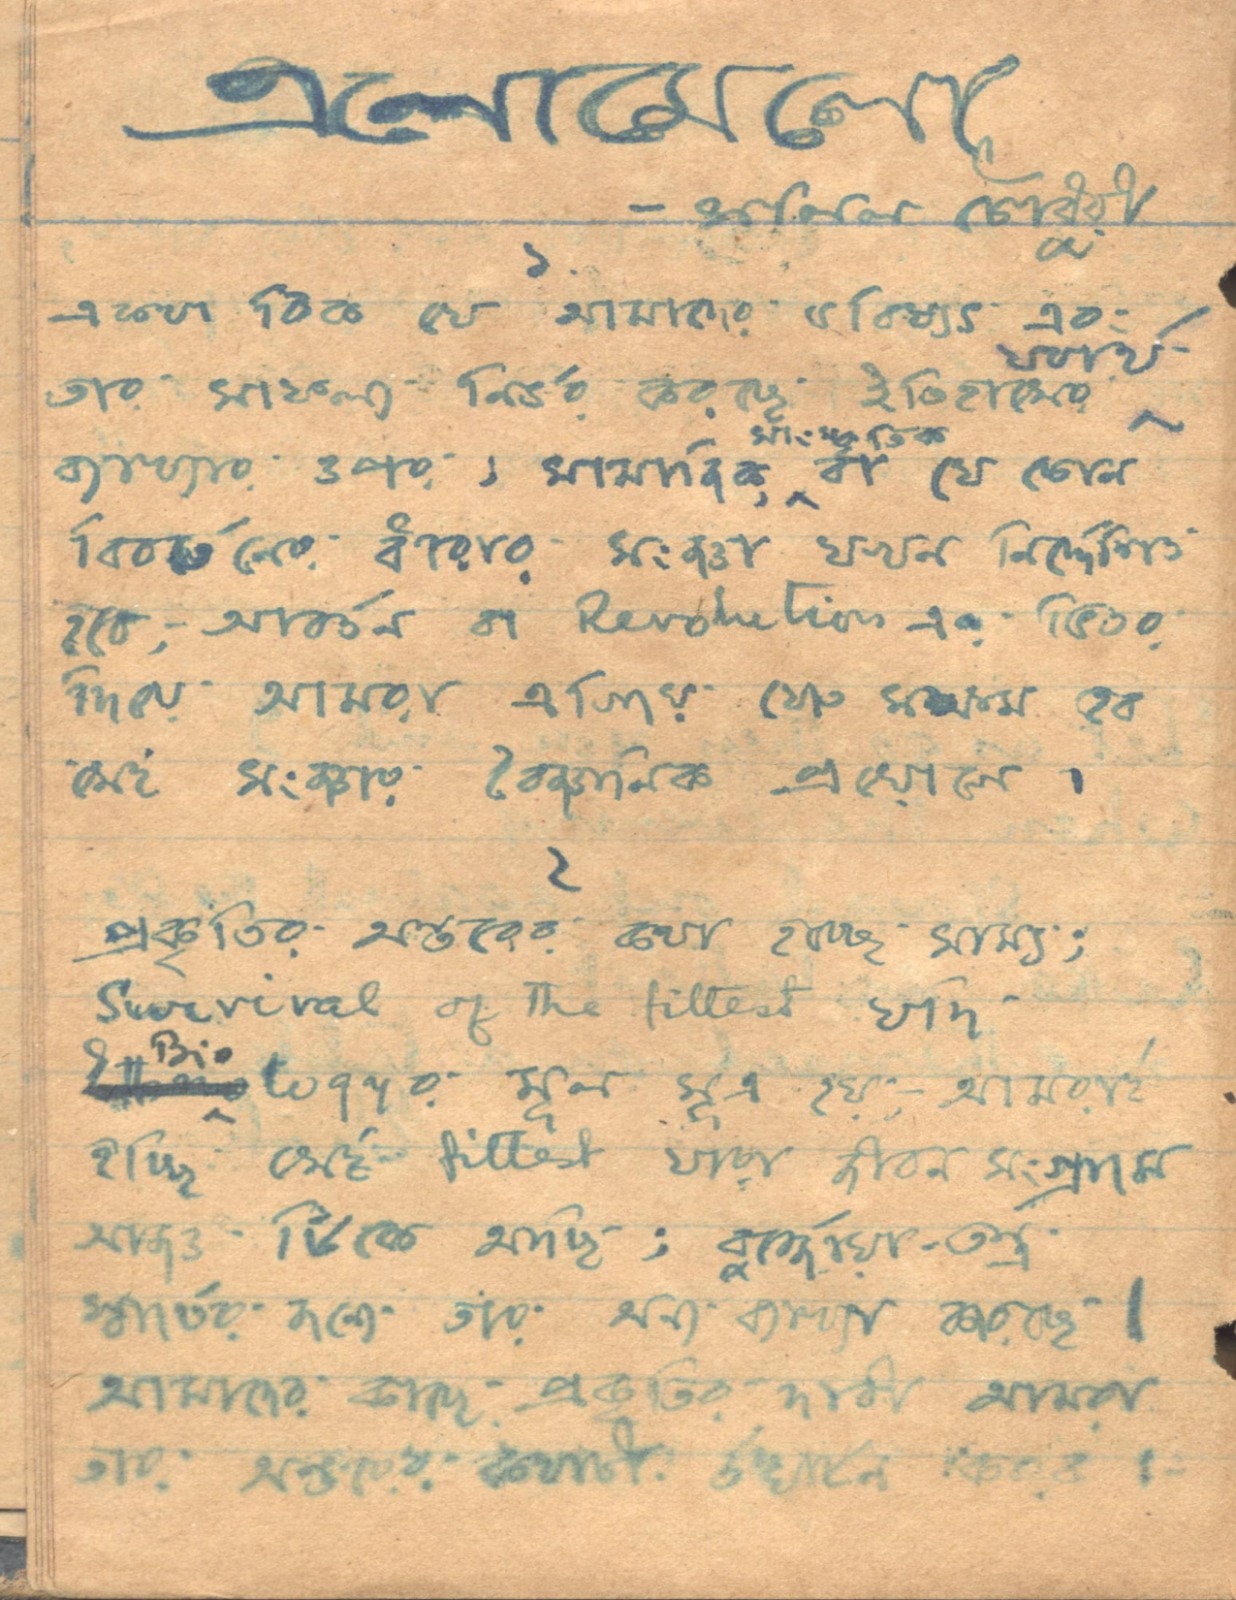 এলোমেলো
- সলিল চৌধুরী
১.
একথা ঠিক যে আমাদের ভবিষ্যৎ এবং
তার সাফল্য নির্ভর করছে ইতিহাসের যথার্থ
ব্যাখ্যার ওপর; সামাজিক, সাংস্কৃতিক বা যে কোন
বিবর্তনের ধারার সংজ্ঞা যখন নির্দ্দেশিত
হবে,- আবর্তন বা Revolution এর ভিতর
দিয়ে আমরা এগিয়ে যেতে সক্ষম হব
সেই সংজ্ঞার বৈজ্ঞানিক প্রয়োগে ।
২
প্রকৃতির অন্তরের কথা হচ্ছে সাম্য;
Survival of the fittest যদি
Biologyর মূল সূত্র হয়,- আমরাই
হচ্ছি সেই fittest যারা জীবন সংগ্রামে
আজও টিকে আছি; বুর্জ্জোয়া-তন্ত্র
স্বার্থের জন্যে তার অন্য ব্যাখ্যা করেছে |
আমাদের কাছে প্রকৃতির দাবী আমরা
তার অন্তরের কথাটী করব ।-